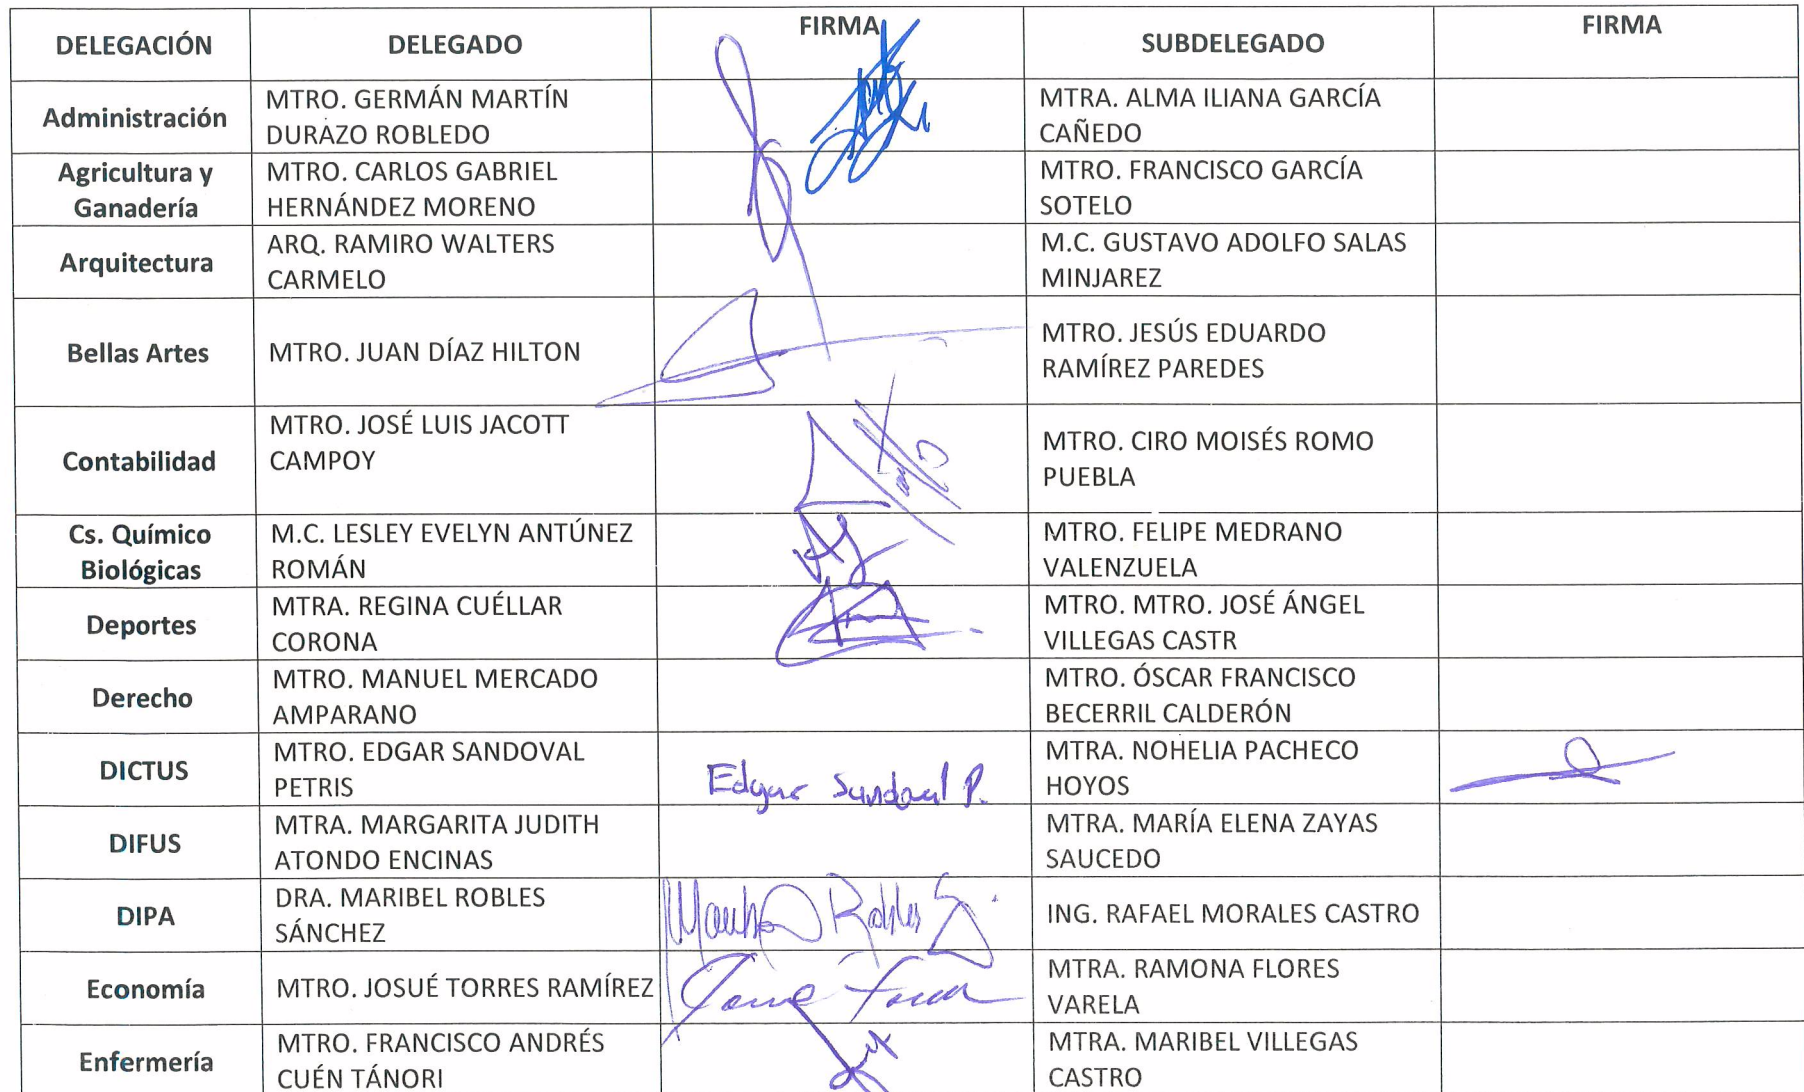 DELEGACIÓN DELEGADO FIRMA SUBDELEGADO FIRMA
Administración
MTRO. GERMÁN MARTÍN
DURAZO ROBLEDO
MTRA. ALMA ILIANA GARCÍA
CAÑEDO
Agricultura y
Ganadería
MTRO. CARLOS GABRIEL
HERNÁNDEZ MORENO
MTRO. FRANCISCO GARCÍA
SOTELO
Arquitectura
ARQ. RAMIRO WALTERS
CARMELO
M.C. GUSTAVO ADOLFO SALAS
MINJAREZ
Bellas Artes
MTRO. JUAN DÍAZ HILTON
MTRO. JESÚS EDUARDO
RAMÍREZ PAREDES
Contabilidad
MTRO. JOSÉ LUIS JACOTT
CAMPOY
MTRO. CIRO MOISÉS ROMO
PUEBLA
Cs. Químico
Biológicas
M.C. LESLEY EVELYN ANTÚNEZ
ROMÁN
MTRO. FELIPE MEDRANO
VALENZUELA
Deportes
MTRA. REGINA CUÉLLAR
CORONA
MTRO. MTRO. JOSÉ ÁNGEL
VILLEGAS CASTR
Derecho
MTRO. MANUEL MERCADO
AMPARANO
MTRO. ÓSCAR FRANCISCO
BECERRIL CALDERÓN
DICTUS
MTRO. EDGAR SANDOVAL
PETRIS
Edgar Sandoval P.
MTRA. NOHELIA PACHECO
HOYOS
DIFUS
MTRA. MARGARITA JUDITH
ATONDO ENCINAS
MTRA. MARÍA ELENA ZAYAS
SAUCEDO
DIPA
DRA. MARIBEL ROBLES
SÁNCHEZ
Maribel Robles S.
ING. RAFAEL MORALES CASTRO
Economía
MTRO. JOSUÉ TORRES RAMÍREZ
MTRA. RAMONA FLORES
VARELA
Enfermería
MTRO. FRANCISCO ANDRÉS
CUÉN TÁNORI
MTRA. MARIBEL VILLEGAS
CASTRO